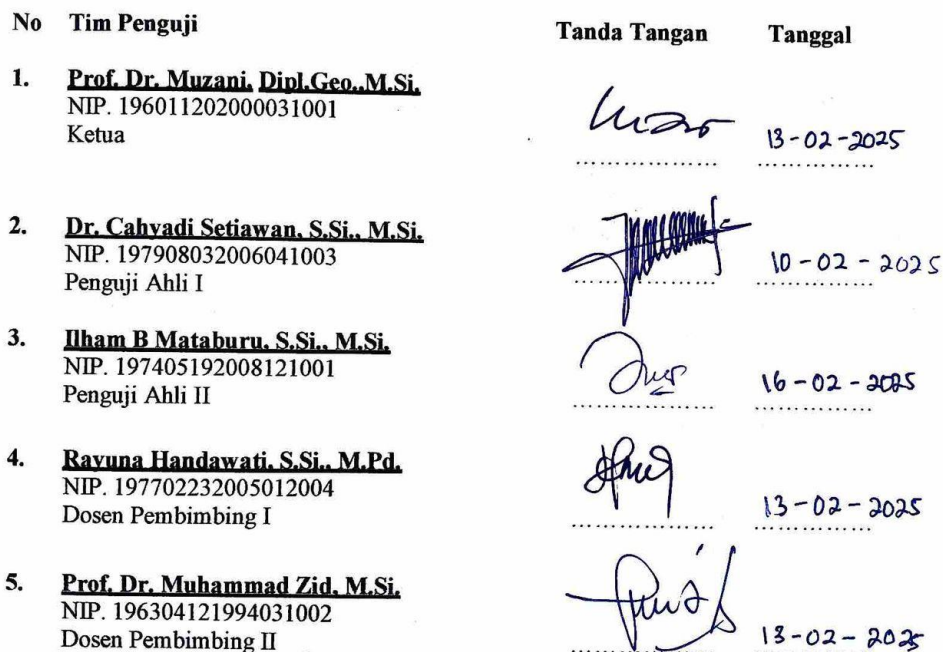 No Tim Penguji Tanda Tangan Tanggal
1. Prof. Dr. Muzani, Dipl.Geo.,M.Si.
NIP. 196011202000031001
Ketua 13-02-2025
2. Dr. Cahyadi Setiawan, S.Si., M.Si.
NIP. 197908032006041003 10-02-2025
Penguji Ahli I
3. Ilham B Mataburu, S.Si., M.Si.
NIP. 197405192008121001 16-02-2025
Penguji Ahli II
4. Rayuna Handawati, S.Si., M.Pd.
NIP. 197702232005012004
Dosen Pembimbing I 13-02-2025
5. Prof. Dr. Muhammad Zid, M.Si.
NIP. 196304121994031002
Dosen Pembimbing II 13-02-2025